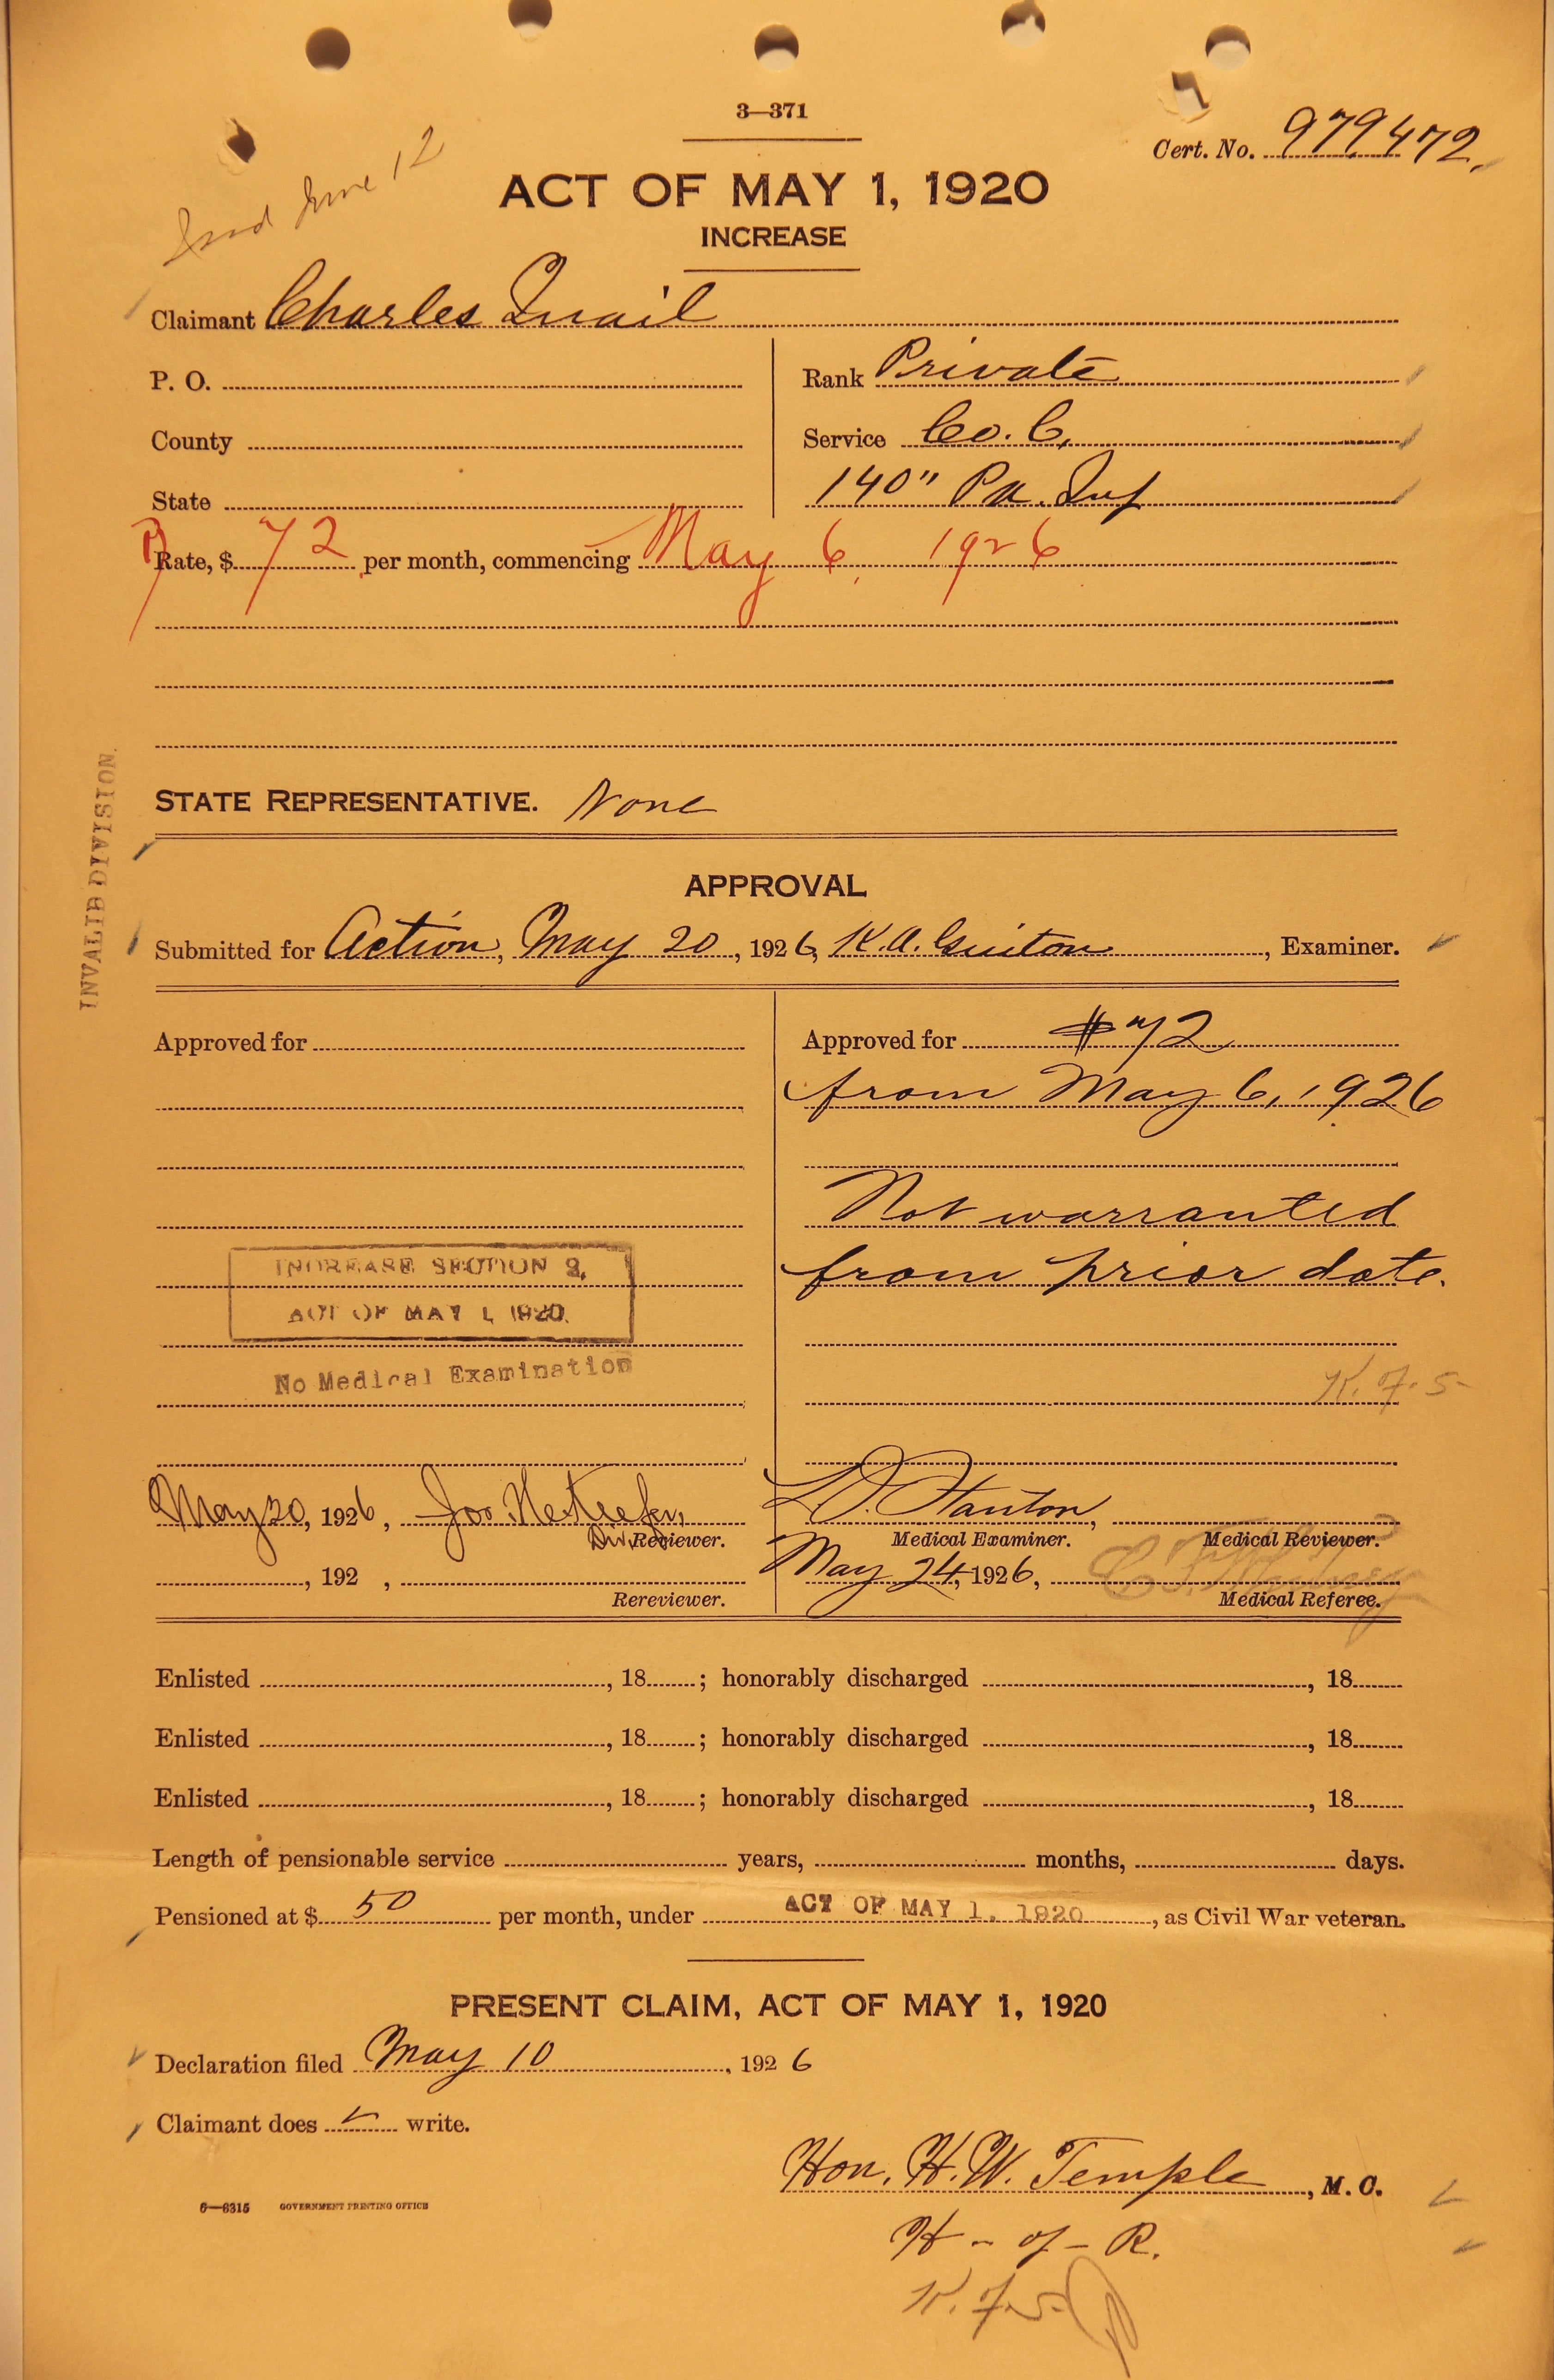 3—371
Cert. No. 979472.
June 12
ACT OF MAY 1, 1920
INCREASE
Claimant Charles Quail
P. O.
Rank Private
County
Service Co. C,
State
140" Pa. Inf
Rate, $ 72 per month, commencing May 6, 1926
STATE REPRESENTATIVE. None
INVALID DIVISION.
APPROVAL
Submitted for Action, May 20, 1926, K. A. , Examiner.
Approved for
Approved for $72
from May 6, 1926
Not warranted
from prior date.
INCREASE SECTION 2,
ACT OF MAY 1, 1920.
No Medical Examination
K. F. S
May 20, 1926, Jos.
Div. Reviewer.
L. D. Stanton,
Medical Examiner. Medical Reviewer.
, 192 ,
Rereviewer.
May 24, 1926,
Medical Referee.
Enlisted , 18 ; honorably discharged , 18
Enlisted , 18 ; honorably discharged , 18
Enlisted , 18 ; honorably discharged , 18
Length of pensionable service years, months, days.
Pensioned at $ 50 per month, under ACT OF MAY 1, 1920 , as Civil War veteran.
PRESENT CLAIM, ACT OF MAY 1, 1920
Declaration filed May 10 , 1926
Claimant does ✓ write.
Hon. H. W. Temple , M. C.
H - of - R.
K. F. S.
6—6315 GOVERNMENT PRINTING OFFICE